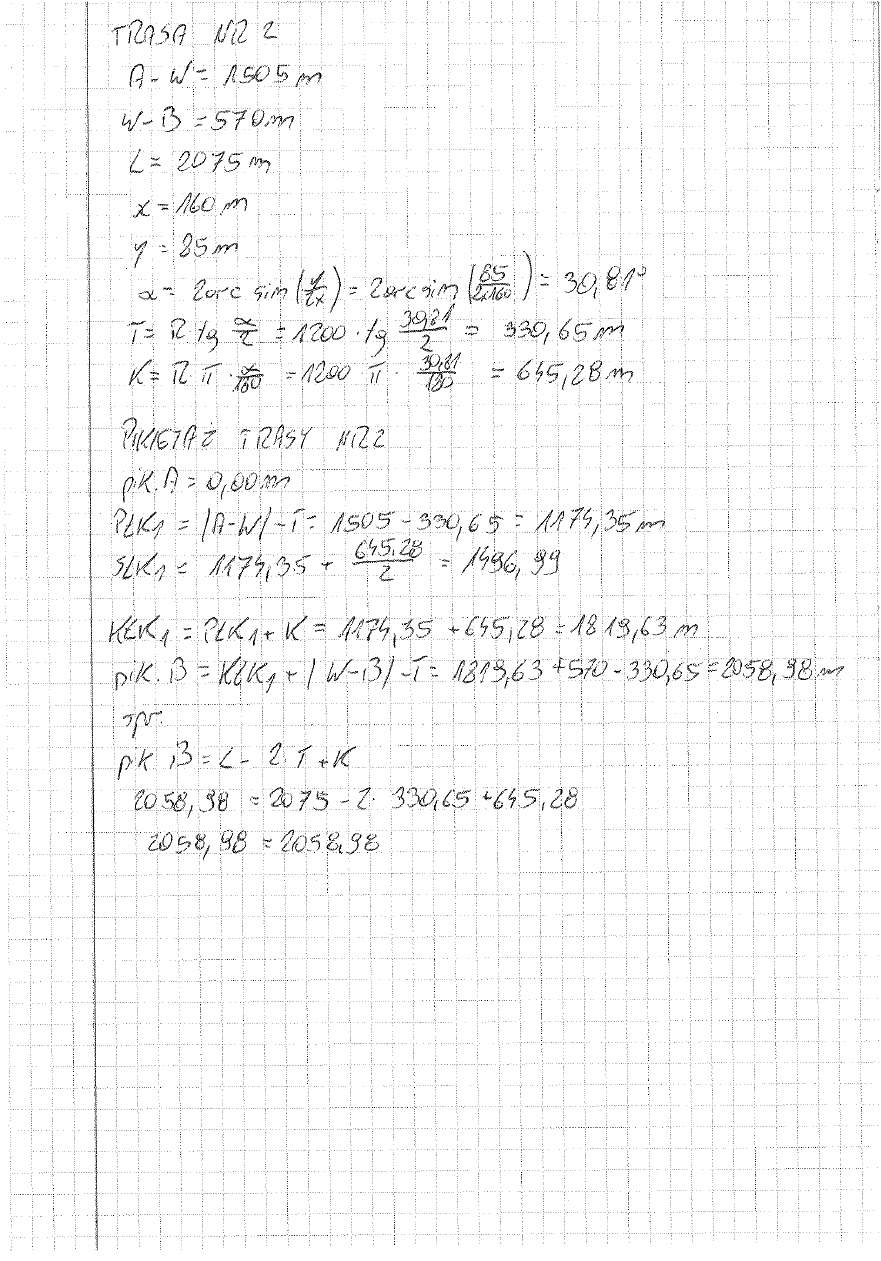 TRASA NR 2
A-W = 1505 m
W-B = 570 m
L = 2075 m
x = 160 m
y = 85 m
α = 2arc sin (y/2x) = 2arc sin (85/2·160) = 30,81°
T = R tg α/2 = 1200 · tg 30,81/2 = 330,65 m
K = R π · α/180 = 1200 π · 30,81/180 = 645,28 m
PIKIETAŻ TRASY NR 2
pik. A = 0,00 m
PŁK1 = |A-W| - T = 1505 - 330,65 = 1174,35 m
SŁK1 = 1174,35 + 645,28/2 = 1496,99
KŁK1 = PŁK1 + K = 1174,35 + 645,28 = 1819,63 m
pik. B = KŁK1 + |W-B| - T = 1819,63 + 570 - 330,65 = 2058,98 m
spr.
pik B = L - 2·T + K
2058,98 = 2075 - 2· 330,65 + 645,28
2058,98 = 2058,98